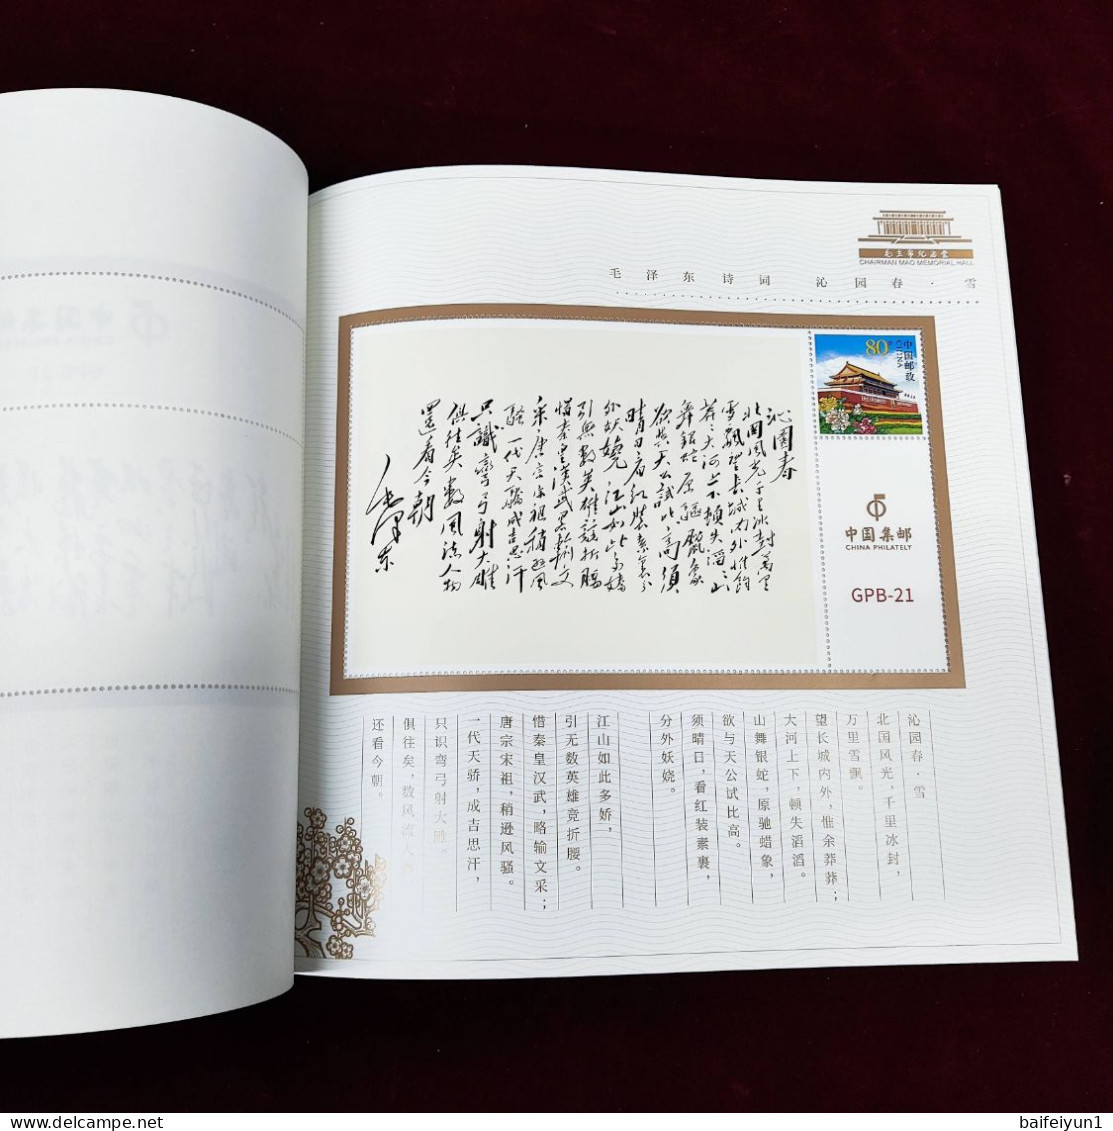 毛主席纪念堂
CHAIRMAN MAO MEMORIAL HALL
毛泽东诗词 沁园春·雪
80
中国邮政
CHINA
中国集邮
CHINA PHILATELY
GPB-21
沁園春
北国风光千里冰封万里
雪飘望长城内外惟馀
莽莽大河上下顿失滔滔山
舞银蛇原驰
欲与天公试比高须
晴日看红装素裹分
外妖娆江山如此多娇
引无数英雄竞折腰
惜秦皇汉武略输文
采唐宗宋祖稍逊风
骚一代天骄成吉思汗
只識彎弓射大雕
俱往矣數风流人物
還看今朝
毛泽东
沁园春·雪
北国风光，千里冰封，
万里雪飘。
望长城内外，惟余莽莽；
大河上下，顿失滔滔。
山舞银蛇，原驰蜡象，
欲与天公试比高。
须晴日，看红装素裹，
分外妖娆。
江山如此多娇，
引无数英雄竞折腰。
惜秦皇汉武，略输文采；
唐宗宋祖，稍逊风骚。
一代天骄，成吉思汗，
只识弯弓射大雕。
俱往矣，数风流人物，
还看今朝。
baifeiyun1